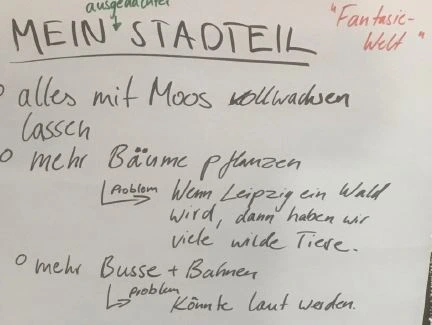 ausgedachter
"Fantasie-
Welt"
MEIN STADTTEIL
o alles mit Moos vollwachsen
lassen
o mehr Bäume pflanzen
Problem Wenn Leipzig ein Wald
wird, dann haben wir
viele wilde Tiere.
o mehr Busse + Bahnen
problem
Könnte laut werden.